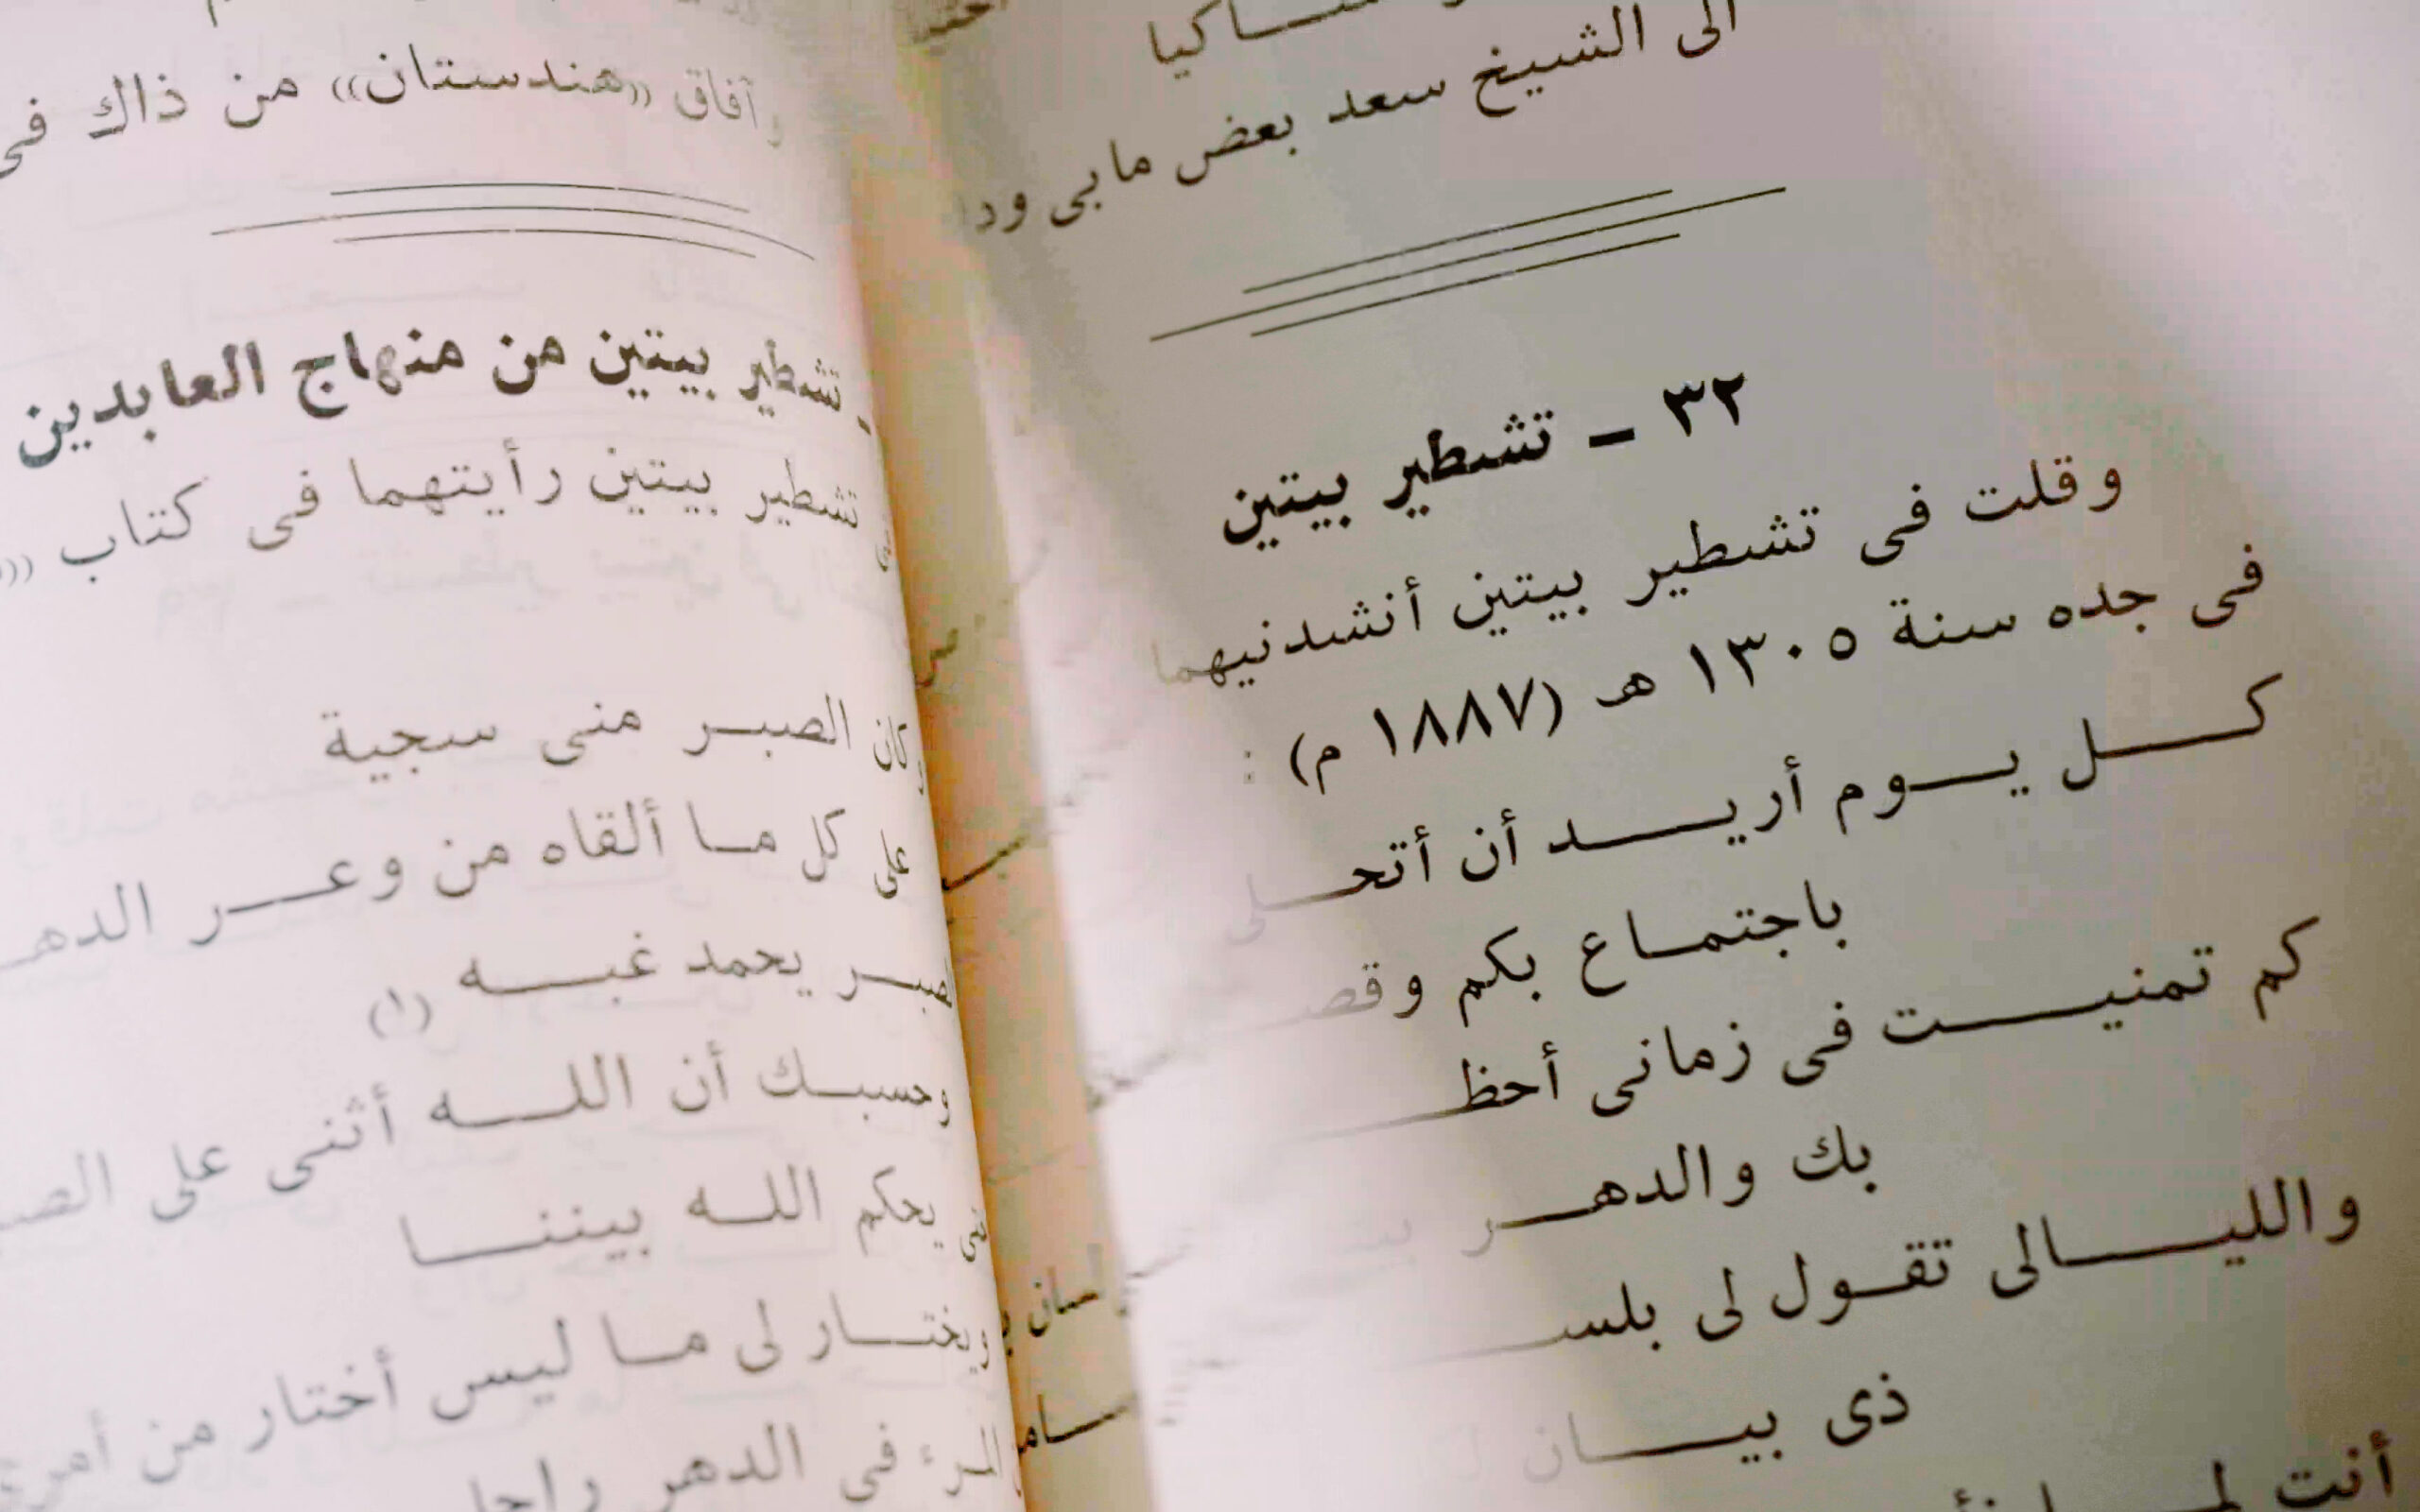 الى الشيخ سعد بعض مابى
٣٢ ــ تشطير بيتين
وقلت فى تشطير بيتين أنشدنيهما
فى جده سنة ١٣٠٥ هـ (١٨٨٧ م) :
كـــل يـــوم أريـــد أن أتحـــلى
باجتمـــاع بكم
كم تمنيـــت فى زمانى
بك والدهـــر
والليـــالى تقـــول لى
ذى بيـــان
أنت
وآفاق «هندستان» من ذاك فى
تشطير بيتين من منهاج العابدين
تشطير بيتين رأيتهما فى كتاب «
وكان الصبـــر منى سجية
على كل مـــا ألقاه من وعـــر
يحمد غبـــه (١)
وحسبـــك أن اللـــه أثنى على
يحكم اللـــه بيننـــا
ويختـــار لى مـــا ليس أختار من
المـــرء فى الدهر